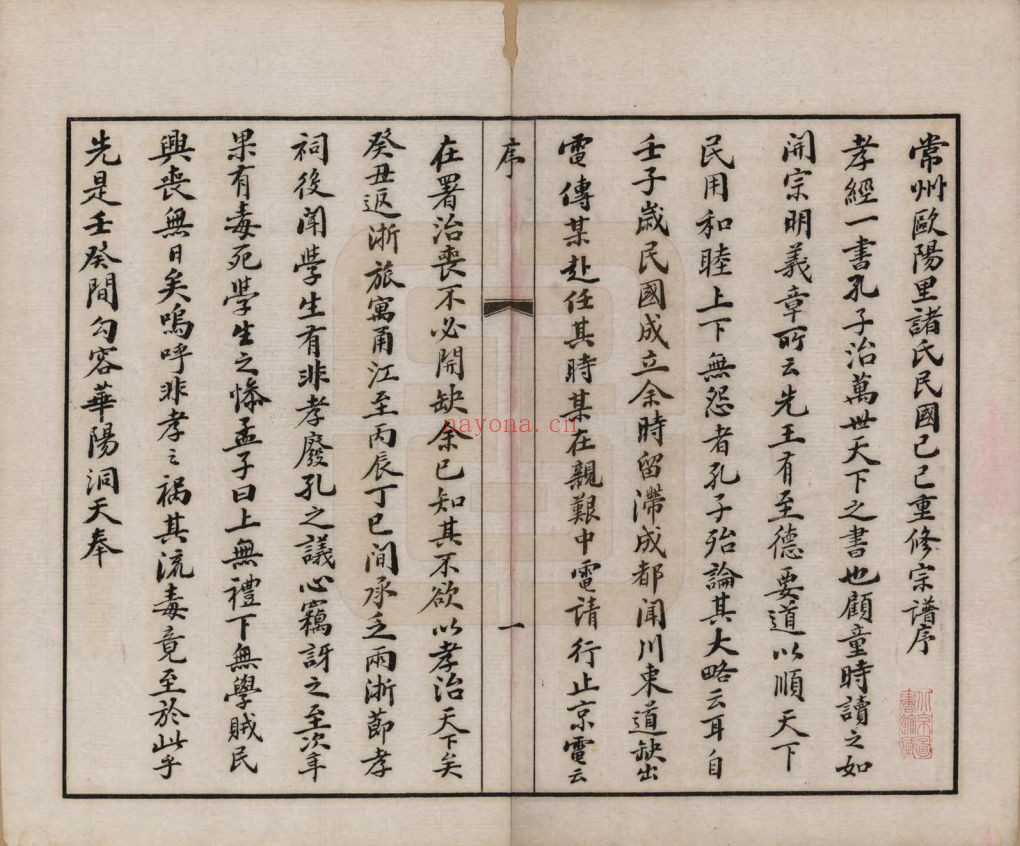 常州歐陽里諸氏民國己巳重修宗譜序
孝經一書孔子治萬世天下之書也顧童時讀之如
開宗明義章所云先王有至德要道以順天下
民用和睦上下無怨者孔子殆論其大略云耳自
壬子歲民國成立余時留滯成都聞川東道缺出
電傳某赴任其時某在親艱中電請行止京電云
序
一
在署治喪不必開缺余已知其不欲以孝治天下矣
癸丑返浙旅寓甬江至丙辰丁巳間承乏兩浙節孝
祠後聞學生有非孝廢孔之議心竊訝之至次年
果有毒死學生之慘孟子曰上無禮下無學賊民
興喪無日矣嗚呼非孝之禍其流毒竟至於此乎
先是壬癸間勾容華陽洞天奉
nayona.cn